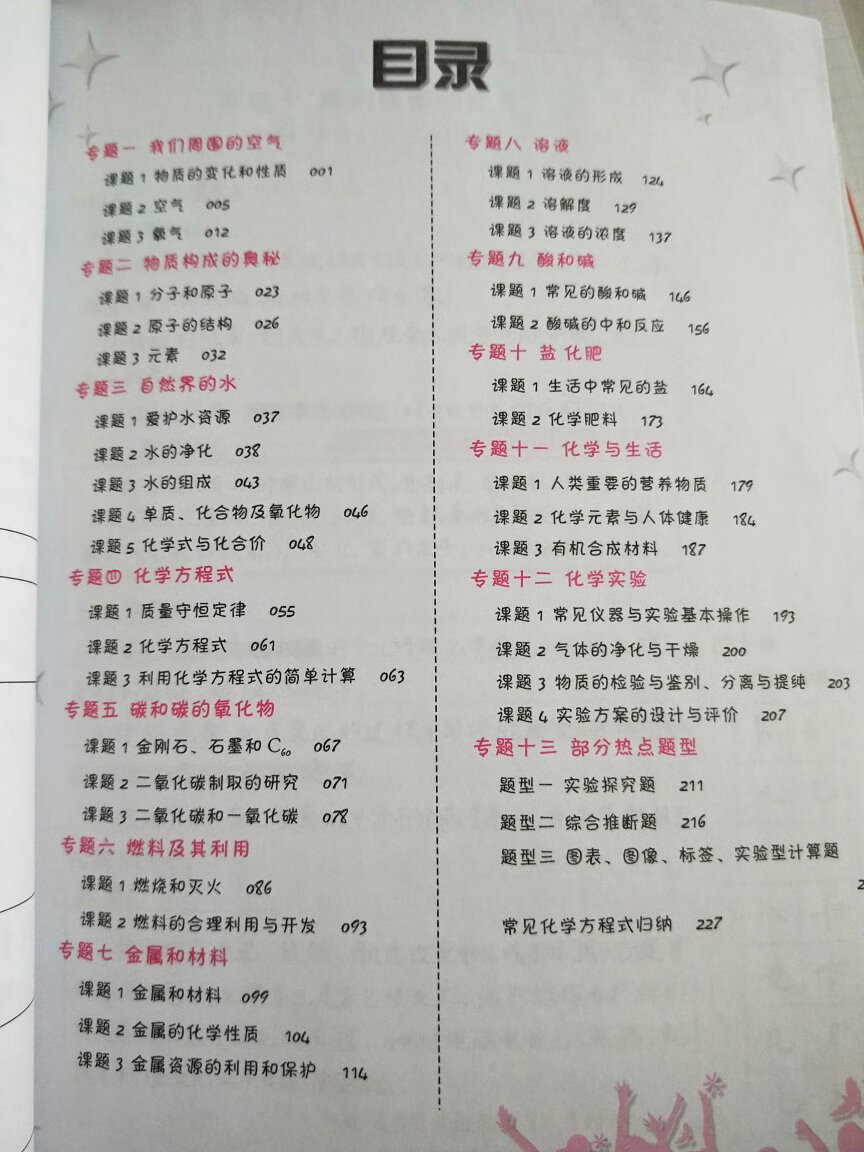 目录
专题一 我们周围的空气
课题1 物质的变化和性质 001
课题2 空气 005
课题3 氧气 012
专题二 物质构成的奥秘
课题1 分子和原子 023
课题2 原子的结构 026
课题3 元素 032
专题三 自然界的水
课题1 爱护水资源 037
课题2 水的净化 038
课题3 水的组成 043
课题4 单质、化合物及氧化物 046
课题5 化学式与化合价 048
专题四 化学方程式
课题1 质量守恒定律 055
课题2 化学方程式 061
课题3 利用化学方程式的简单计算 063
专题五 碳和碳的氧化物
课题1 金刚石、石墨和C₆₀ 067
课题2 二氧化碳制取的研究 071
课题3 二氧化碳和一氧化碳 078
专题六 燃料及其利用
课题1 燃烧和灭火 086
课题2 燃料的合理利用与开发 093
专题七 金属和材料
课题1 金属和材料 099
课题2 金属的化学性质 104
课题3 金属资源的利用和保护 114
专题八 溶液
课题1 溶液的形成 124
课题2 溶解度 129
课题3 溶液的浓度 137
专题九 酸和碱
课题1 常见的酸和碱 146
课题2 酸碱的中和反应 156
专题十 盐 化肥
课题1 生活中常见的盐 164
课题2 化学肥料 173
专题十一 化学与生活
课题1 人类重要的营养物质 179
课题2 化学元素与人体健康 184
课题3 有机合成材料 187
专题十二 化学实验
课题1 常见仪器与实验基本操作 193
课题2 气体的净化与干燥 200
课题3 物质的检验与鉴别、分离与提纯 203
课题4 实验方案的设计与评价 207
专题十三 部分热点题型
题型一 实验探究题 211
题型二 综合推断题 216
题型三 图表、图像、标签、实验型计算题
常见化学方程式归纳 227